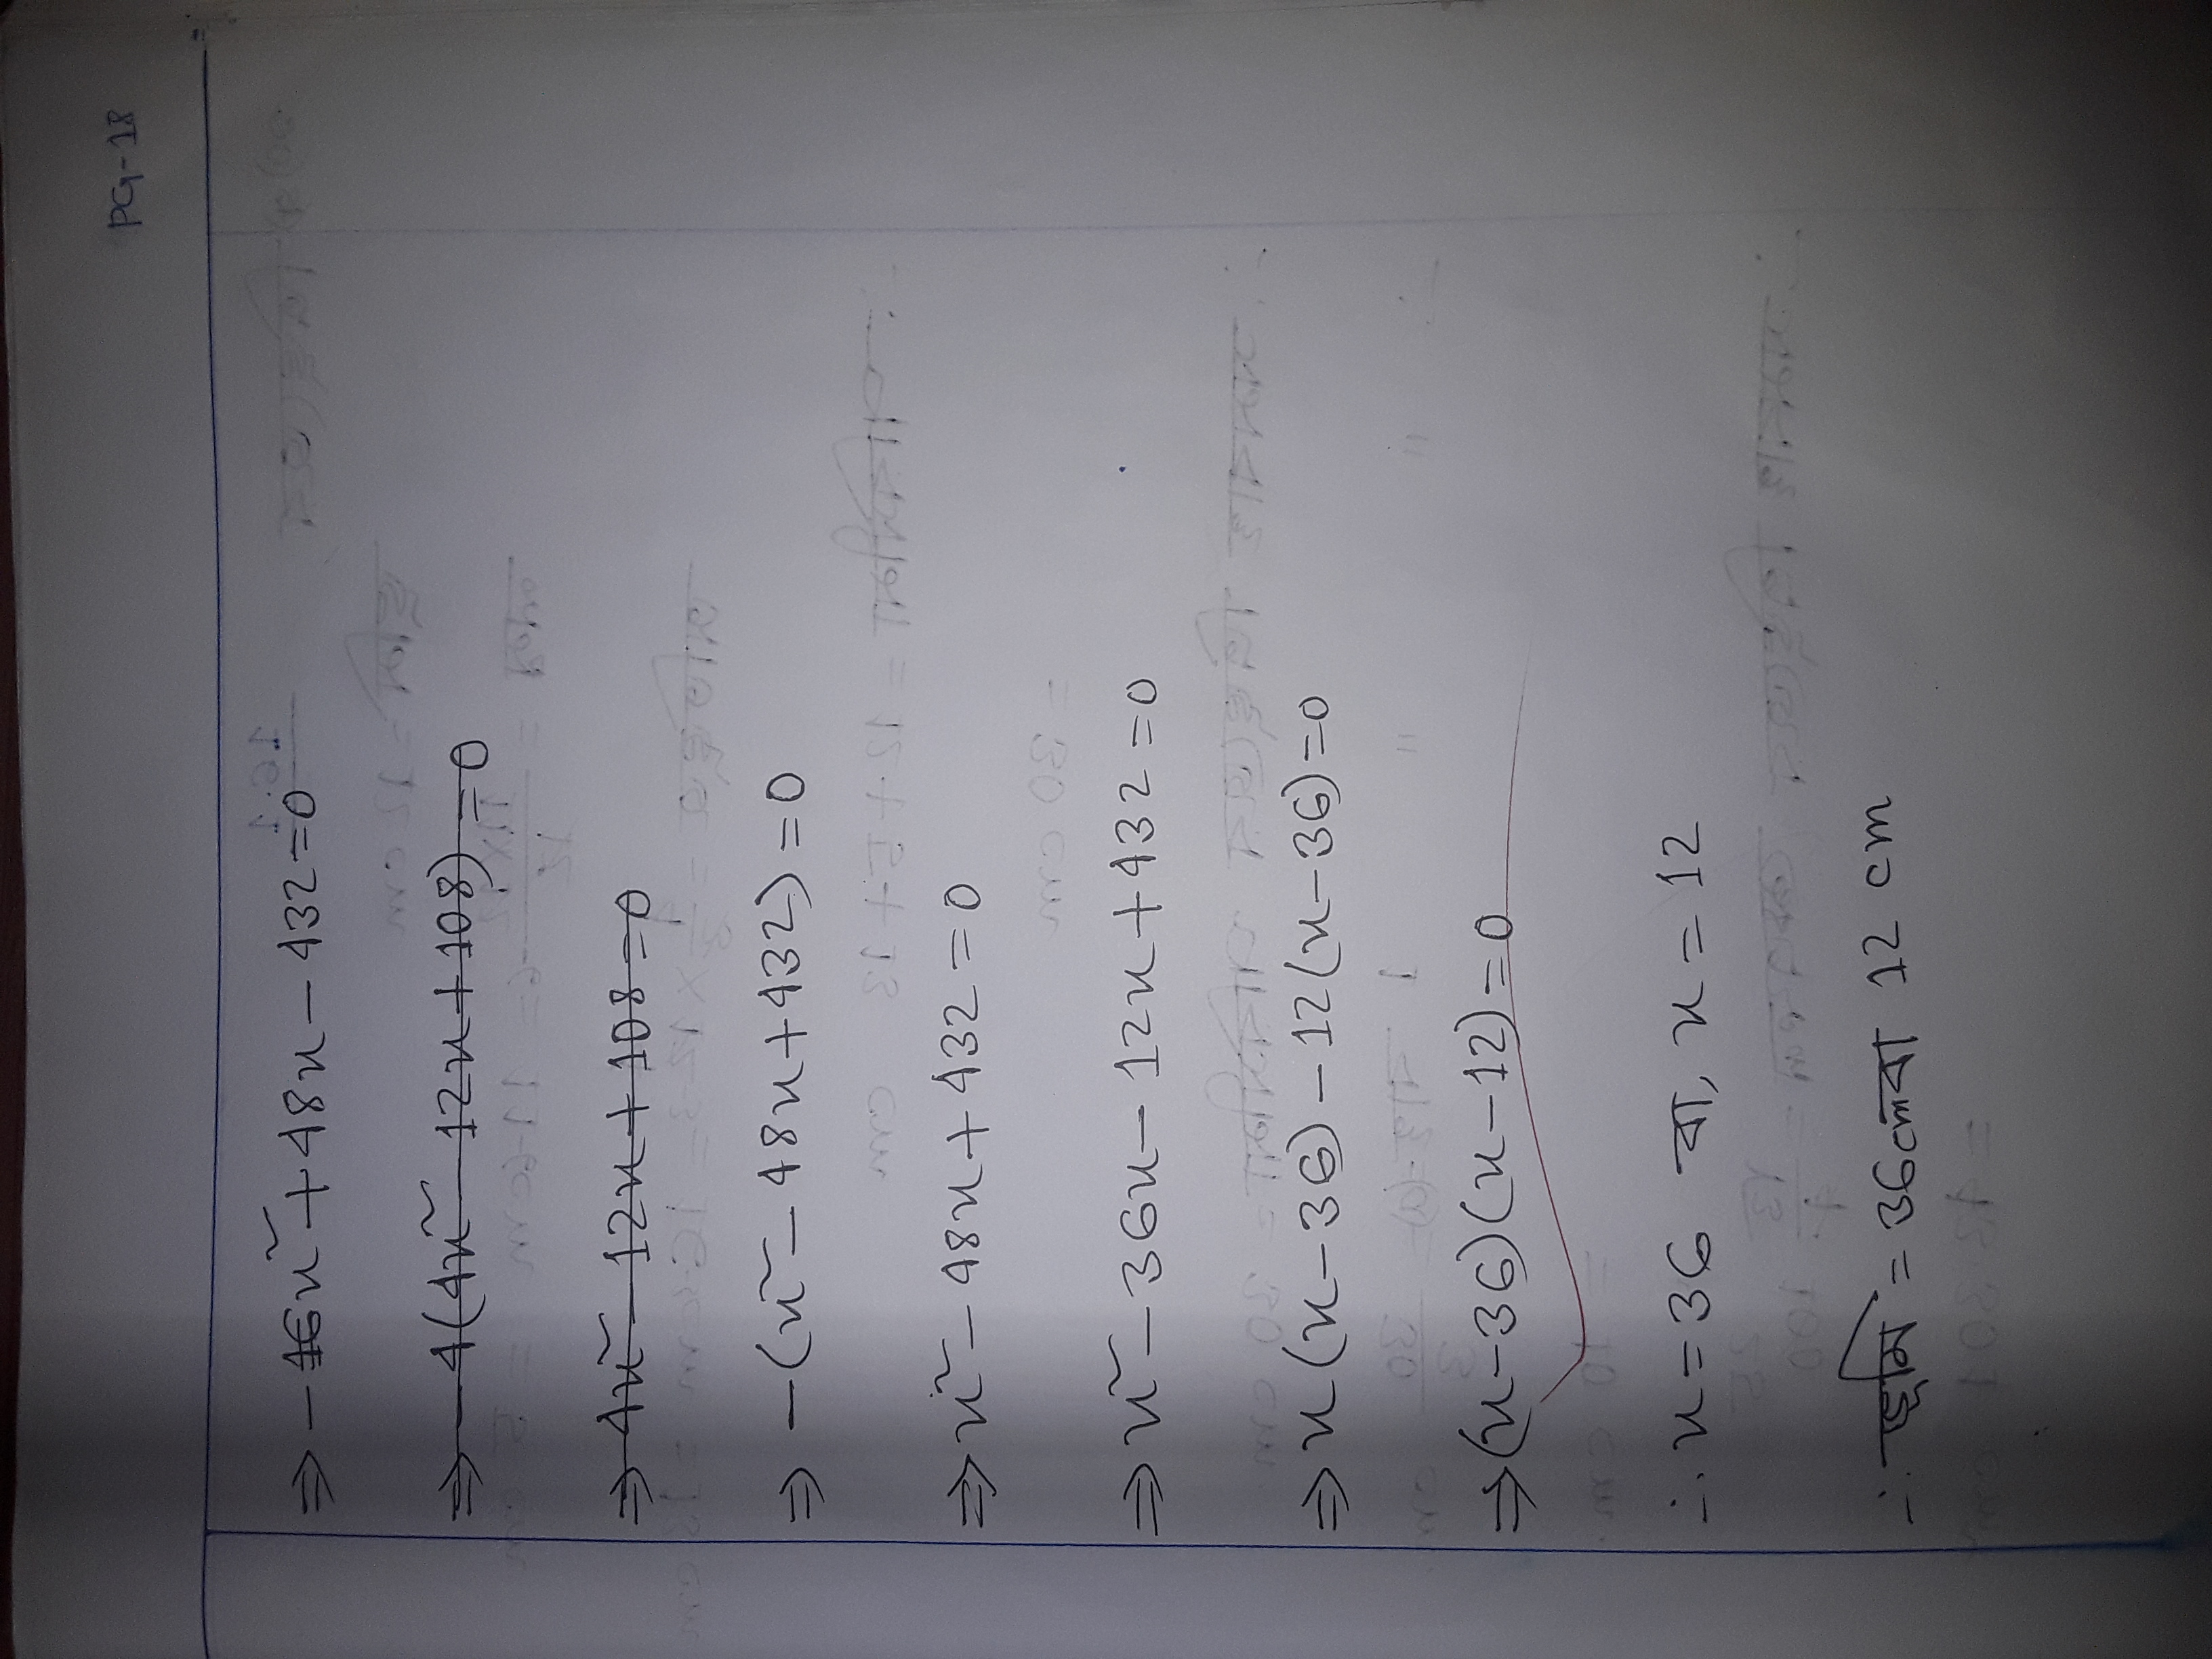 PG-18
⇒ - 16x² + 48x - 432 = 0
⇒ - 4(4x² - 12x + 108) = 0
⇒ 4x² - 12x + 108 = 0
⇒ -(x² - 48x + 432) = 0
⇒ x² - 48x + 432 = 0
⇒ x² - 36x - 12x + 432 = 0
⇒ x(x - 36) - 12(x - 36) = 0
⇒ (x - 36)(x - 12) = 0
∴ x = 36 বা, x = 12
∴ ভূমি = 36cm বা 12 cm